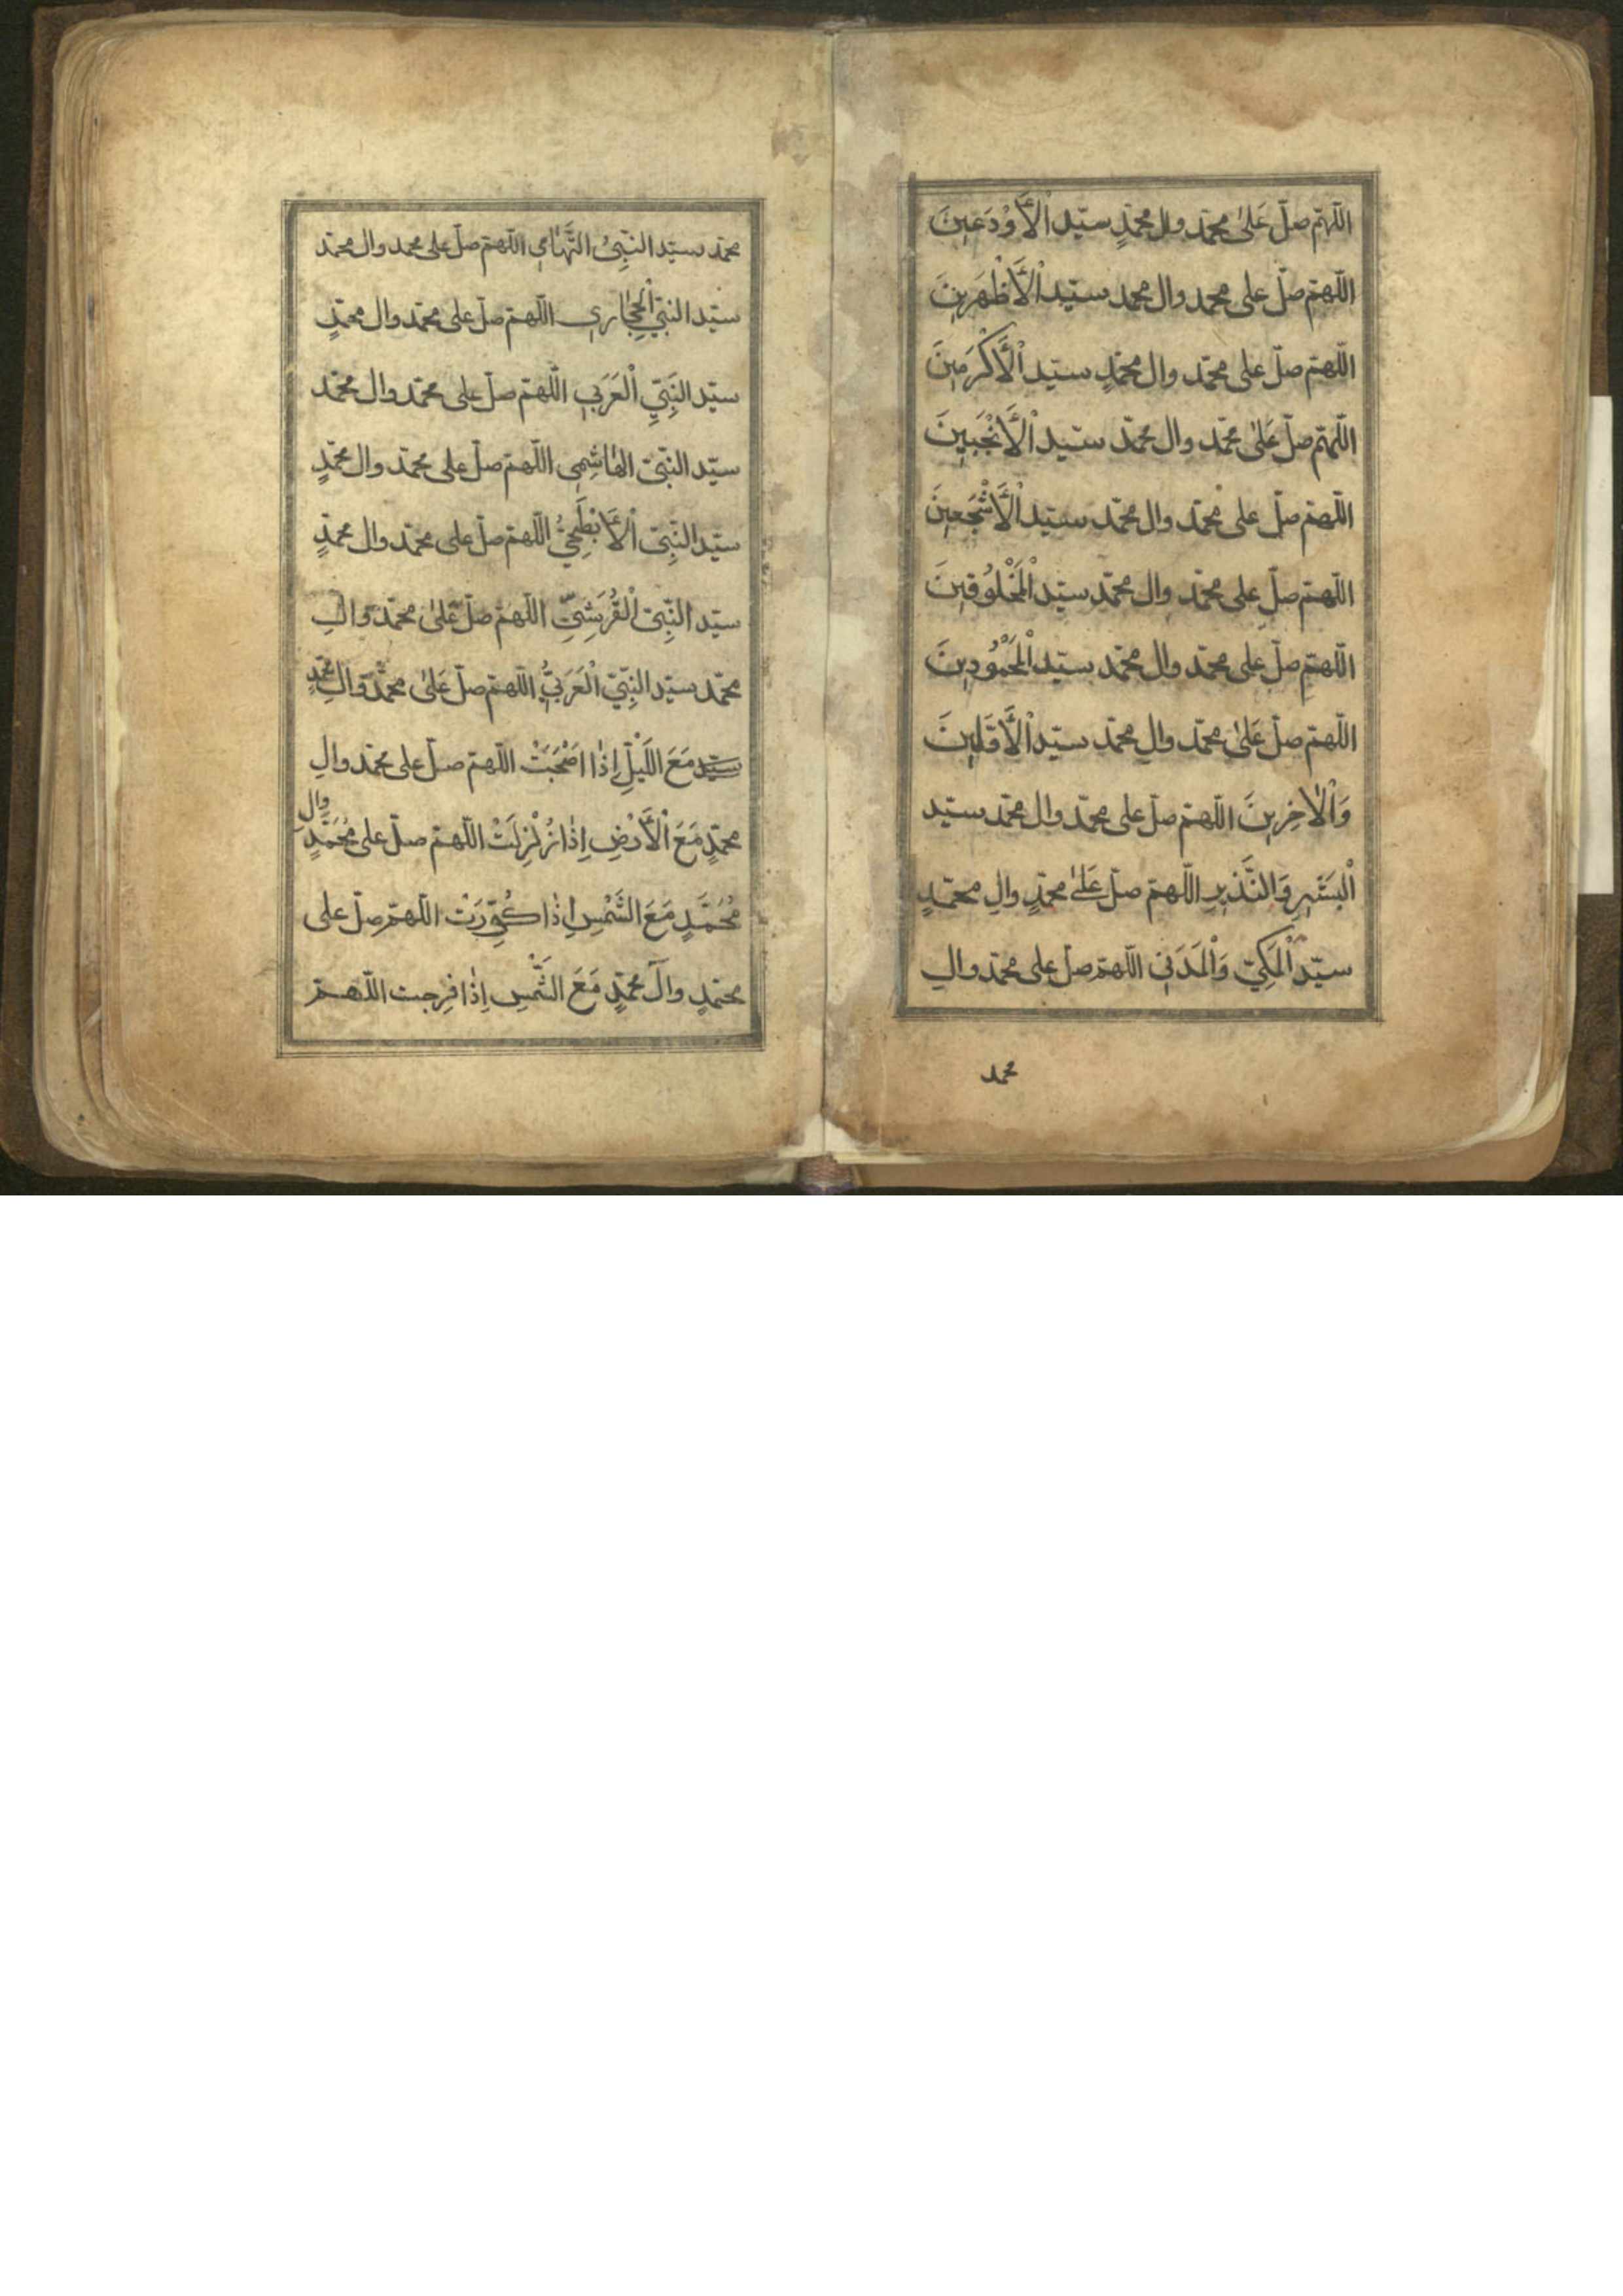 اللهم صل علی محمد وال محمد سید الاودعین
اللهم صل علی محمد وال محمد سید الاظهرین
اللهم صل علی محمد وال محمد سید الاکرمین
اللهم صل علی محمد وال محمد سید الانجبین
اللهم صل علی محمد وال محمد سید الاشجعین
اللهم صل علی محمد وال محمد سید المخلوقین
اللهم صل علی محمد وال محمد سید المحمودین
اللهم صل علی محمد وال محمد سید الاقلین
والاخرین اللهم صل علی محمد وال محمد سید
البشیر والنذیر اللهم صل علی محمد وال محمد
سید المکی والمدنی اللهم صل علی محمد وال
محمد
محمد سید النبی التهامی اللهم صل علی محمد وال محمد
سید النبی الحجازی اللهم صل علی محمد وال محمد
سید النبی العربی اللهم صل علی محمد وال محمد
سید النبی الهاشمی اللهم صل علی محمد وال محمد
سید النبی الابطحی اللهم صل علی محمد وال محمد
سید النبی القرشی اللهم صل علی محمد وال
محمد سید النبی العربی اللهم صل علی محمد وال محمد
سید مع اللیل اذا اللهم صل علی محمد وال
محمد مع الارض اذا زلزلت اللهم صل علی محمد وال
محمد مع الشمس اذا کورت اللهم صل علی
محمد وال محمد مع الشمس اذا فرجت اللهم